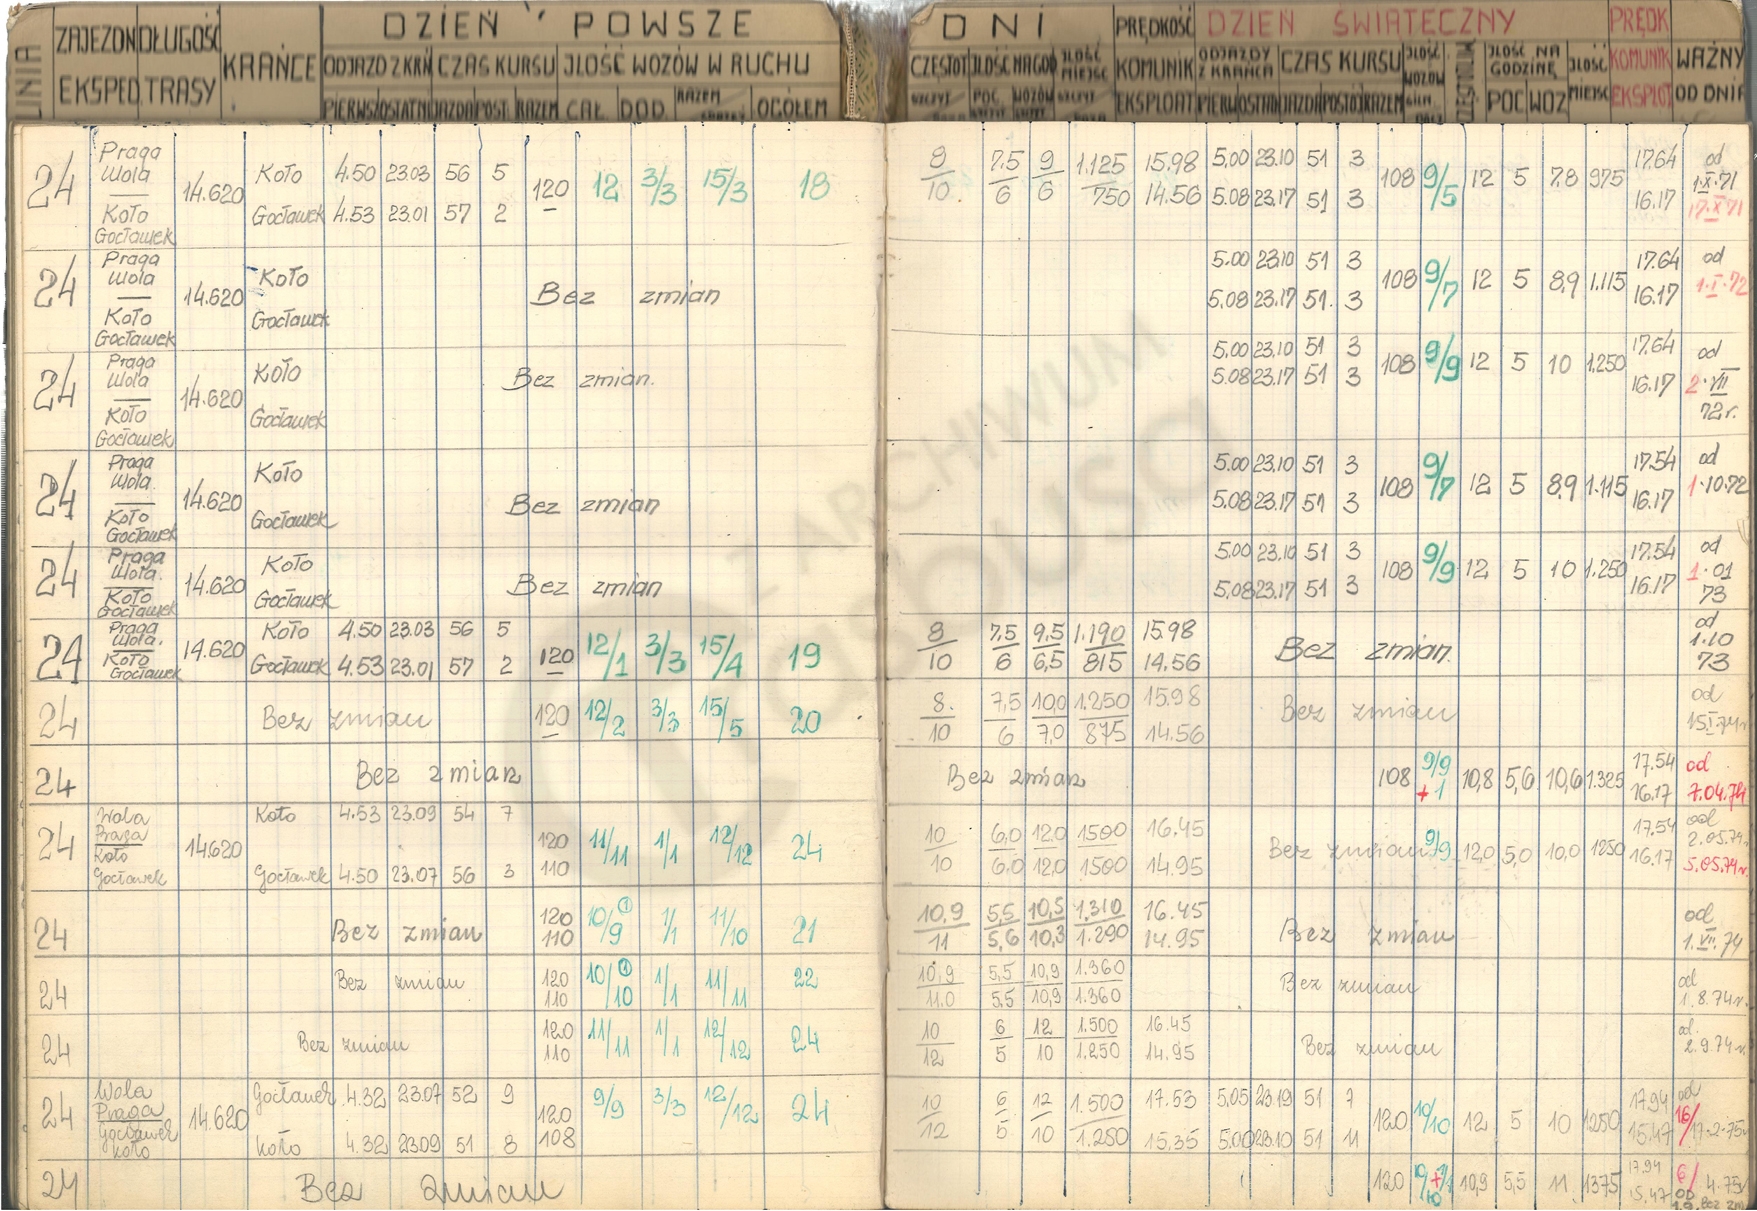 LINIA ZAJEZDN EKSPED DŁUGOŚĆ TRASY KRAŃCE DZIEŃ POWSZE DNI PRĘDKOŚĆ DZIEŃ ŚWIĄTECZNY PRĘDK
ODJAZD Z KRAŃ CZAS KURSU ILOŚĆ WOZÓW W RUCHU CZĘSTOT ILOŚĆ NA GOD ILOŚĆ MIEJSC KOMUNIK ODJAZDY Z KRAŃCA CZAS KURSU ILOŚĆ WOZÓW ILOŚĆ NA GODZINĘ ILOŚĆ KOMUNIK WAŻNY
PIERWSZ OSTATNI JAZDA POST. RAZEM CAŁ. DOD. RAZEM OGÓŁEM SZCZYT POC. WOZÓW SZCZYT EKSPLOAT PIERW OSTAT JAZDA POSTÓJ RAZEM POC WOZ MIEJSC EKSPLOT OD DNIA
24 Praga Wola — Koło Gocławek 14.620
Koło 4.50 23.03 56 5 120 12 3/3 15/3 18 8/10 7.5/6 9/6 1.125/750 15.98 5.00 23.10 51 3 108 9/5 12 5 7.8 975 17.64 od 1.X.71
Gocławek 4.53 23.01 57 2 14.56 5.08 23.17 51 3 16.17 17.X.71
24 Praga Wola — Koło Gocławek 14.620
Koło Bez zmian 5.00 23.10 51 3 108 9/7 12 5 8,9 1.115 17.64 od 1.I.72
Gocławek 5.08 23.17 51 3 16.17
24 Praga Wola — Koło Gocławek 14.620
Koło Bez zmian. 5.00 23.10 51 3 108 9/9 12 5 10 1.250 17.64 od 2.VII 72r.
Gocławek 5.08 23.17 51 3 16.17
24 Praga Wola — Koło Gocławek 14.620
Koło Bez zmian 5.00 23.10 51 3 108 9/7 12 5 8,9 1.115 17.54 od 1.10.72
Gocławek 5.08 23.17 51 3 16.17
24 Praga Wola. — Koło Gocławek 14.620
Koło Bez zmian 5.00 23.10 51 3 108 9/9 12 5 10 1.250 17.54 od 1.01 73
Gocławek 5.08 23.17 51 3 16.17
24 Praga Wola. — Koło Gocławek 14.620
Koło 4.50 23.03 56 5 120 12/1 3/3 15/4 19 8/10 7.5/6 9,5/6,5 1.190/815 15.98 Bez zmian. od 1.10 73
Gocławek 4.53 23.01 57 2 14.56
24 Bez zmian 120 12/2 3/3 15/5 20 8/10 7,5/6 10,0/7,0 1.250/875 15.98 14.56 Bez zmian od 15.I.74r
24 Bez zmian Bez zmian 108 9/9 +1 10,8 5,6 10,6 1.325 17.54 16.17 od 7.04.74
24 Wola Praga Koło Gocławek 14.620
Koło 4.53 23.09 54 7 120 11/11 1/1 12/12 24 10/10 6,0/6,0 12,0/12,0 1500/1500 16.45 Bez zmian 9/9 12,0 5,0 10,0 1250 17.54 od 2.05.74r.
Gocławek 4.50 23.07 56 3 110 14.95 16.17 5.05.74r.
24 Bez zmian 120 110 10/9 ① 1/1 11/10 21 10,9/11 5,5/5,6 10,5/10,3 1.310/1.290 16.45 14.95 Bez zmian od 1.VII.74
24 Bez zmian 120 110 10/10 ① 1/1 11/11 22 10,9/11.0 5,5/5,5 10,9/10,9 1.360/1.360 Bez zmian od 1.8.74r.
24 Bez zmian 120 110 11/11 1/1 12/12 24 10/12 6/5 12/10 1.500/1.250 16.45 14.95 Bez zmian od. 2.9.74r.
24 Wola Praga Gocławek Koło 14.620
Gocławek 4.32 23.07 52 9 120 9/9 3/3 12/12 24 10/12 6/5 12/10 1.500/1.250 17.53 5.05 23.19 51 7 120 10/10 12 5 10 1250 17.94 od 16/17.2.75r
Koło 4.32 23.09 51 8 108 15.35 5.00 23.10 51 11 15.47
24 Bez zmian 120 10/10 +1/1 10,9 5,5 11 1375 17.94 15.47 6/4.75r
OD 1.9. Bez zm
Z ARCHIWUM